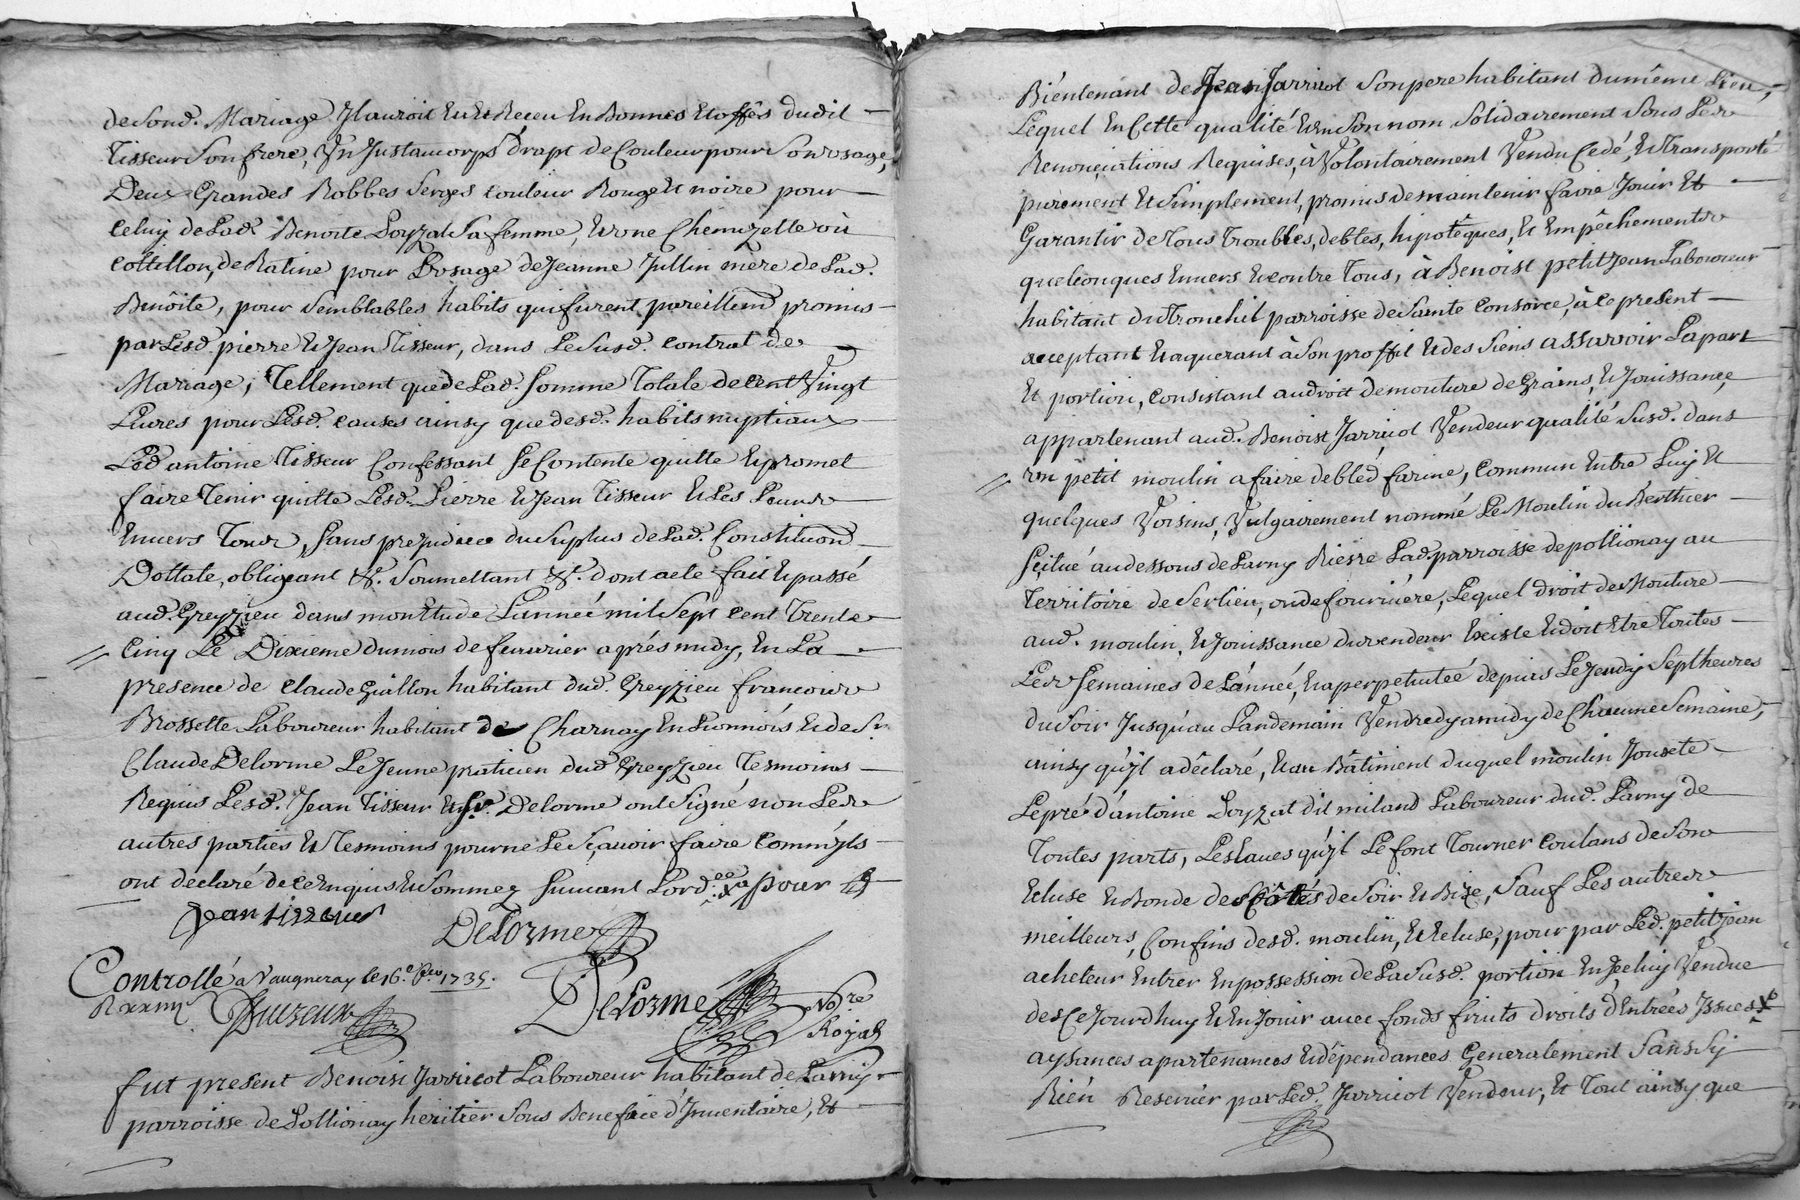 de Sond. Mariage Il auroit Eu et Receu En Bonnes Etoffes dudit
Tisseur Son frere, Un Justaucorps drapt de Couleur pour Son Usage,
Deux Grandes Robbes Serges couleur Rouge et noire pour
Celuy de Lad. Benoite Loyzat Sa femme, et une Chemizette ou
Cottillon, de Ratine pour L'usage de Jeanne Jullin mere de Lad.
Benoite, pour Semblables habits qui furent pareillem promis
par Lesd. pierre et Jean Tisseur, dans Le Susd. Contrat de
Mariage, Tellement que de Lad. Somme Totale de Cent Vingt
Livres pour Lesd. causes ainsy que desd. habits nuptiaux
Led antoine Tisseur Confessant Se Contente quitte et promet
faire Tenir quitte Lesd. Pierre et Jean Tisseur et Les Leurs
Envers Tous, Sans prejudice du Suplus de Lad. Constitution
Dottale, obligeant &c. Soumettant &c. dont acte fait et passé
aud. Greyzieu dans mon Etude L'année mil Sept cent Trente
Cinq Le Dixieme du mois de fevrier aprés midy, En La
presence de Claude Giallon habitant dud. Greyzieu francois
Brossette Laboureur habitant de Charnay En Lionnois et de Sr.
Claude Delorme Le Jeune praticien dud Greyzieu Tesmoins
Requis Lesd. Jean Tisseur et Sr. Delorme ont Signé non Les
autres parties et Tesmoins pour ne Le Sçavoir faire Comm'yls
ont déclaré de ce Enquis et Sommez Suivant L'ord.ce
Jean tisseur
Delorme
Controllé a Vaugneray le 16e. 1735.
Delorme No.re
Royal
fut present Benoist Jarricot Laboureur habitant de Larny
parroisse de Pollionay heritier Sous Benefice d'Inventaire, Et
Biéntenant de Jean Jarricot Son pere habitant du même Lieu,
Lequel En Cette qualité et en Son nom Solidairement Sous Les
Renonciations Requises, à Volontairement Vendu Cedé, et Transporté
purement et Simplement, promis de maintenir faire Jouir et
Garantir de Tous Troubles, debtes, hipotêques, et Empêchements
quelconques Envers et contre Tous, à Benoist petitjean Laboureur
habitant du Tronchil parroisse de Sainte Consorce, à ce present
acceptant et aquerant à Son proffit et des Siens assavoir La part
et portion, Consistant au droit de mouture de Grains, et Jouissance
appartenant aud. Benoist Jarricot Vendeur qualité Susd. dans
un petit moulin a faire de bled farine, Commun Entre Luy et
quelques Voisins, Vulgairement nommé Le Moulin du Berthier
Scitué au dessous de Larny Riesre Lad. parroisse de pollionay au
Territoire de Serlieu, ou de fouriviére, Lequel droit de Mouture
aud. moulin, et Jouissance du vendeur Existe et doit Etre Toutes
Les Semaines de L'année, et a perpetuitée depuis Le Jeudy Sept heures
du Soir Jusqu'au Landemain Vendredy a midy de Chacune Semaine,
ainsy qu'yl a déclaré, et au Bâtiment duquel moulin Jouxte
Le pré d'antoine Loyzat dit miland Laboureur dud. Larny de
Toutes parts, Les Eaues qu'yl Le font Tourner Coulans de Son
Ecluse et Bonde des Côttés de Soir et Bize, Sauf Les autres
meilleurs, Confins desd. moulin, et Ecluse, pour par Led. petitjean
acheteur Entrer En possession de La Susd. portion En Jceluy Vendue
des Ce Jourd'huy et En Jouir avec fonds fruits droits d'Entrées Issues
aysances apartenances et dépendances Generalement Sans y
Rién Reserver par Led. Jarricot Vendeur, Et Tout ainsy que